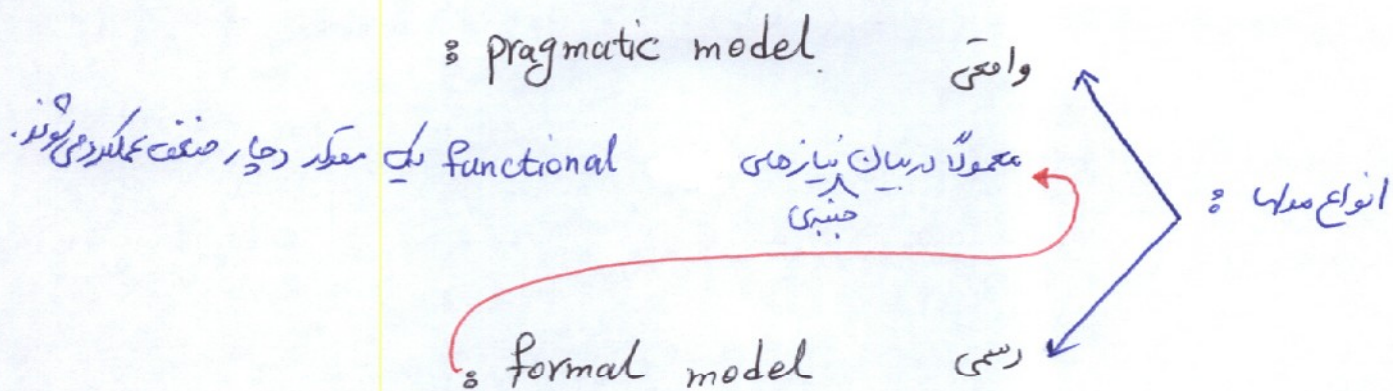 انواع مدلها :
واقعی pragmatic model :
معمولاً در بیان نیازهای جنبی functional یک دچار ضعف عملکرد می‌شوند.
رسمی formal model :